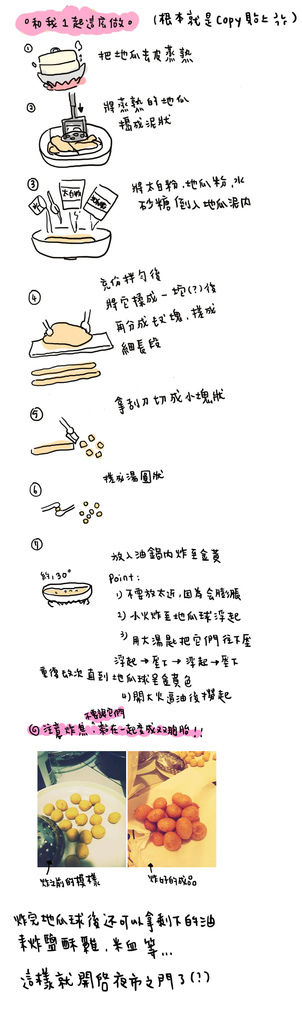 和我1起這房做。
(根本就是Copy貼上 ㄎㄎ)
①
把地瓜去皮蒸熟
②
將蒸熟的地瓜
搗成泥狀
③
水
太白粉
將太白粉、地瓜粉、水
砂糖倒入地瓜泥內
④
充份拌勻後
將它揉成一坨(?)後
再分成大塊，搓成
細長段
⑤
拿刮刀切成小塊狀
⑥
搓成湯圓狀
⑦
放入油鍋內炸至金黃
Point:
1) 不要放太近，因為會膨脹
2) 小火炸至地瓜球浮起
3) 用大湯匙把它們往下壓
浮起→壓下→浮起→壓下
重復數次直到地瓜球呈金黃色
4) 開大火逼油後撈起
不要讓它們
◎注意炸焦，黏在一起變成双胞胎!!
炸之前的模樣
炸好的成品
炸完地瓜球後還可以拿剩下的油
來炸鹽酥雞、米血等...
這樣就開啓夜市之門了(?)